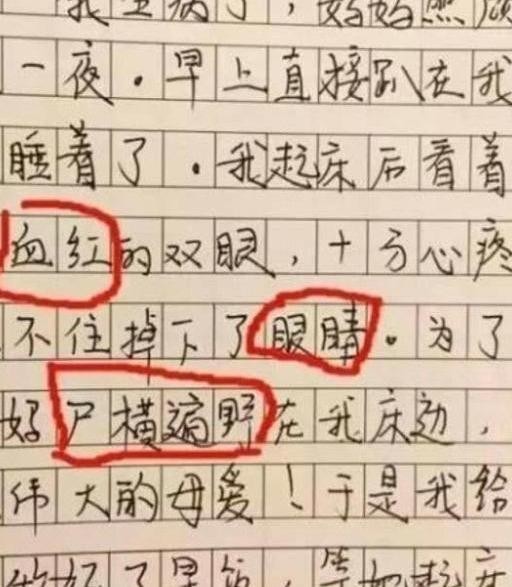 我生病了，妈妈照顾
一夜．早上直接趴在我
睡着了．我起床后看着
血红的双眼，十分心疼
不住掉下了眼睛。为了
好尸横遍野在我床边，
伟大的母爱！于是我给
好了早饭，等妈起床